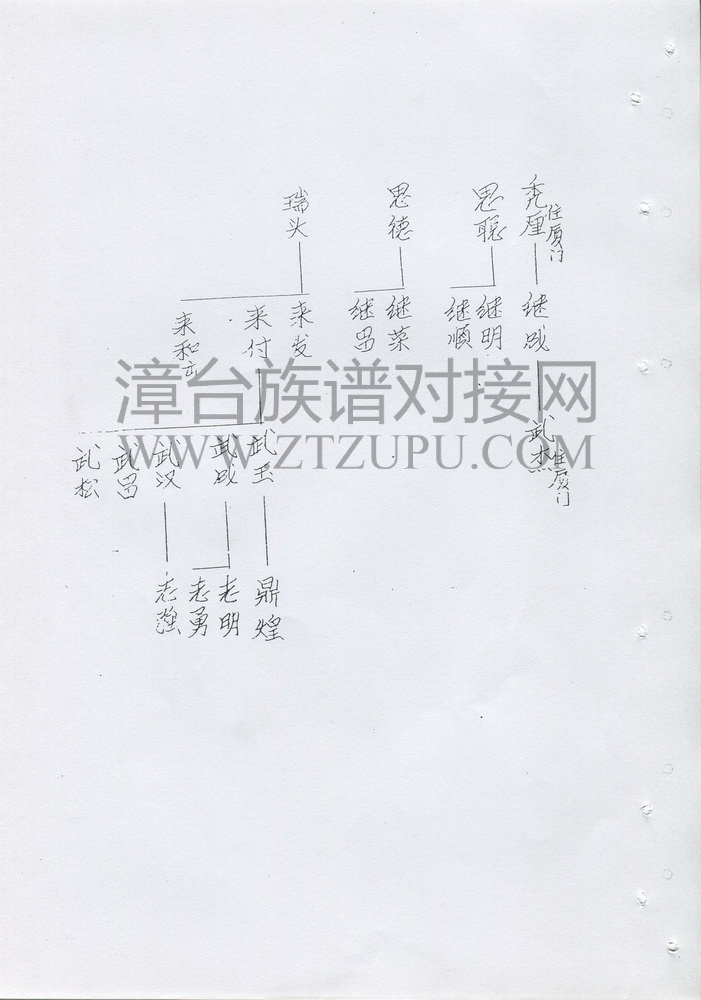 秃厘 住厦门
思聪
思德
瑞头
继成
继明
继顺
继荣
继昌
来发
来付
来和
武杰 住厦门
武玉
武成
武汉
武昌
武松
鼎煌
志明
志勇
志强
漳台族谱对接网
WWW.ZTZUPU.COM